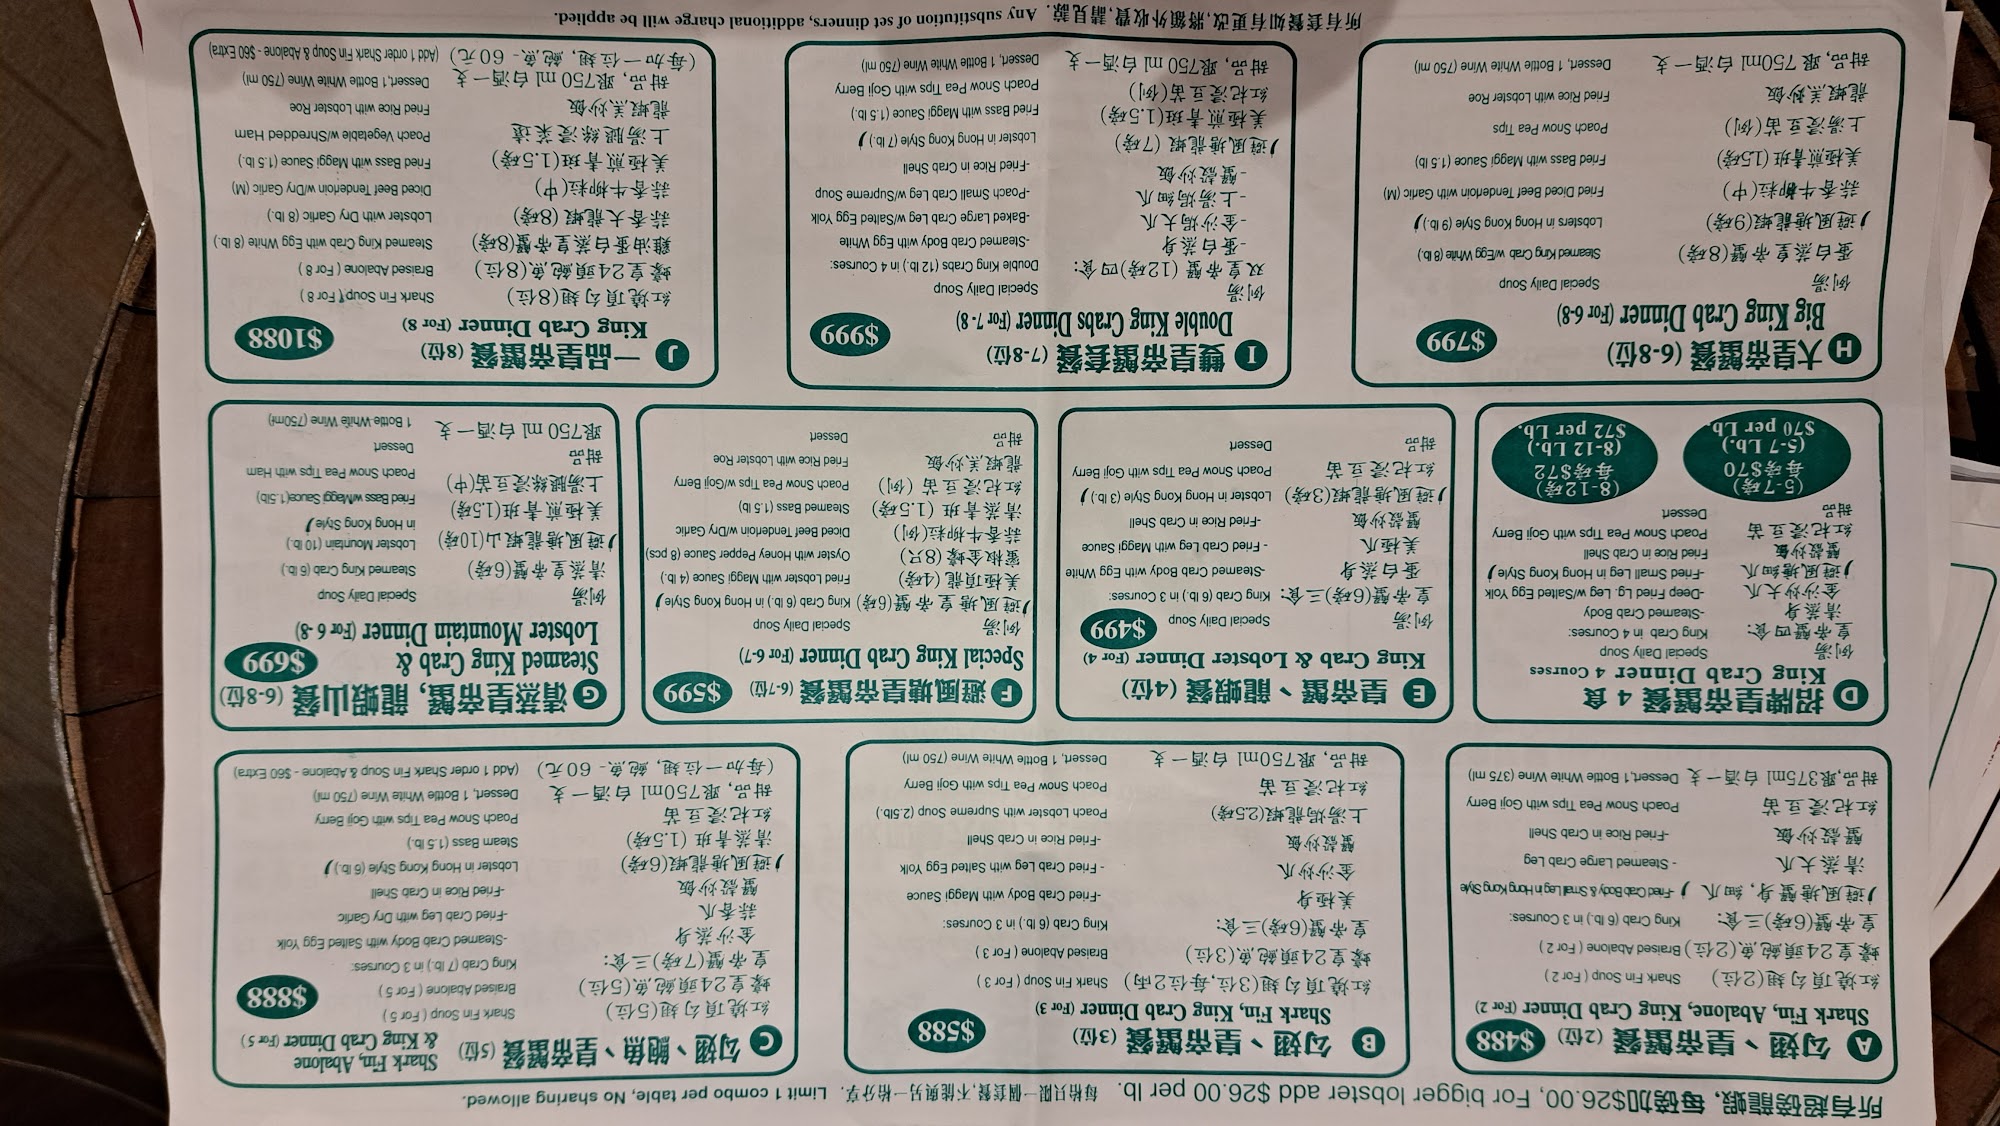 所有超磅龍蝦，每磅加$26.00, For bigger lobster add $26.00 per lb. 每枱只限一個套餐,不能與另一枱分享. Limit 1 combo per table, No sharing allowed.
A 勾翅、皇帝蟹餐 (2位) $488
Shark Fin, Abalone, King Crab Dinner (For 2)
紅燒頂勾翅(2位) Shark Fin Soup ( For 2 )
蠔皇24頭鮑魚(2位) Braised Abalone ( For 2 )
皇帝蟹(6磅)三食: King Crab (6 lb.) in 3 Courses:
避風塘蟹身, 細爪 -Fried Crab Body & Small Leg in Hong Kong Style
清蒸大爪 - Steamed Large Crab Leg
蟹殼炒飯 -Fried Rice in Crab Shell
紅杞浸豆苗 Poach Snow Pea Tips with Goji Berry
甜品,跟375ml 白酒一支 Dessert, 1 Bottle White Wine (375 ml)
B 勾翅、皇帝蟹餐 (3位) $588
Shark Fin, King Crab Dinner (For 3)
紅燒頂勾翅(3位,每位2両) Shark Fin Soup ( For 3 )
蠔皇24頭鮑魚(3位) Braised Abalone ( For 3 )
皇帝蟹(6磅)三食: King Crab (6 lb.) in 3 Courses:
美極身 -Fried Crab Body with Maggi Sauce
金沙炒爪 - Fried Crab Leg with Salted Egg Yolk
蟹殼炒飯 -Fried Rice in Crab Shell
上湯焗龍蝦(2.5磅) Poach Lobster with Supreme Soup (2.5lb.)
紅杞浸豆苗 Poach Snow Pea Tips with Goji Berry
甜品, 跟750ml 白酒一支 Dessert, 1 Bottle White Wine (750 ml)
C 勾翅、鮑魚、皇帝蟹餐 (5位) Shark Fin, Abalone
& King Crab Dinner (For 5 )
$888
紅燒頂勾翅(5位) Shark Fin Soup ( For 5 )
蠔皇24頭鮑魚(5位) Braised Abalone ( For 5 )
皇帝蟹(7磅)三食: King Crab (7 lb.) in 3 Courses:
金沙蒸身 -Steamed Crab Body with Salted Egg Yolk
蒜香爪 -Fried Crab Leg with Dry Garlic
蟹殼炒飯 -Fried Rice in Crab Shell
避風塘龍蝦(6磅) Lobster in Hong Kong Style (6 lb.)
清蒸青班 (1.5磅) Steam Bass (1.5 lb.)
紅杞浸豆苗 Poach Snow Pea Tips with Goji Berry
甜品, 跟750ml 白酒一支 Dessert, 1 Bottle White Wine (750 ml)
(每加一位翅, 鮑魚- 60元) (Add 1 order Shark Fin Soup & Abalone - $60 Extra)
D 招牌皇帝蟹餐 4 食
King Crab Dinner 4 Courses
例湯 Special Daily Soup
皇帝蟹四食: King Crab in 4 Courses:
清蒸身 -Steamed Crab Body
金沙炒大爪 -Deep Fried Lg. Leg w/Salted Egg Yolk
避風塘細爪 -Fried Small Leg in Hong Kong Style
蟹殼炒飯 Fried Rice in Crab Shell
紅杞浸豆苗 Poach Snow Pea Tips with Goji Berry
甜品 Dessert
(5-7磅)
每磅$70
(5-7 Lb.)
$70 per Lb.
(8-12磅)
每磅$72
(8-12 Lb.)
$72 per Lb.
E 皇帝蟹、龍蝦餐 (4位)
King Crab & Lobster Dinner (For 4)
例湯 Special Daily Soup $499
皇帝蟹(6磅)三食: King Crab (6 lb.) in 3 Courses:
蛋白蒸身 -Steamed Crab Body with Egg White
美極爪 - Fried Crab Leg with Maggi Sauce
蟹殼炒飯 -Fried Rice in Crab Shell
避風塘龍蝦(3磅) Lobster in Hong Kong Style (3 lb.)
紅杞浸豆苗 Poach Snow Pea Tips with Goji Berry
甜品 Dessert
F 避風塘皇帝蟹餐 (6-7位) $599
Special King Crab Dinner (For 6-7)
例湯 Special Daily Soup
避風塘皇帝蟹(6磅) King Crab (6 lb.) in Hong Kong Style
美極頂龍 (4磅) Fried Lobster with Maggi Sauce (4 lb.)
蜜椒金蠔 (8只) Oyster with Honey Pepper Sauce (8 pcs)
蒜香牛柳粒(例) Diced Beef Tenderloin w/Dry Garlic
清蒸青班 (1.5磅) Steamed Bass (1.5 lb)
紅杞浸豆苗 (例) Poach Snow Pea Tips w/Goji Berry
龍蝦羔炒飯 Fried Rice with Lobster Roe
甜品 Dessert
G 清蒸皇帝蟹, 龍蝦山餐 (6-8位)
Steamed King Crab &
Lobster Mountain Dinner (For 6-8)
$699
例湯 Special Daily Soup
清蒸皇帝蟹(6磅) Steamed King Crab (6 lb.)
避風塘龍蝦山(10磅) Lobster Mountain (10 lb.)
in Hong Kong Style
美極煎青班 (1.5磅) Fried Bass w/Maggi Sauce(1.5lb)
上湯腿絲浸豆苗(中) Poach Snow Pea Tips with Ham
甜品 Dessert
跟750 ml 白酒一支 1 Bottle White Wine (750ml)
H 大皇帝蟹餐 (6-8位)
Big King Crab Dinner (For 6-8)
$799
例湯 Special Daily Soup
蛋白蒸皇帝蟹(8磅) Steamed King Crab w/Egg White (8 lb.)
避風塘龍蝦(9磅) Lobsters in Hong Kong Style (9 lb.)
蒜香牛柳粒(中) Fried Diced Beef Tenderloin with Garlic (M)
美極煎青班(1.5磅) Fried Bass with Maggi Sauce (1.5 lb)
上湯浸豆苗(例) Poach Snow Pea Tips
龍蝦羔炒飯 Fried Rice with Lobster Roe
甜品, 跟 750ml 白酒一支 Dessert, 1 Bottle White Wine (750 ml)
I 雙皇帝蟹套餐 (7-8位)
Double King Crabs Dinner (For 7-8)
$999
例湯 Special Daily Soup
双皇帝蟹 (12磅)四食: Double King Crabs (12 lb.) in 4 Courses:
- 蛋白蒸身 -Steamed Crab Body with Egg White
- 金沙焗大爪 -Baked Large Crab Leg w/Salted Egg Yolk
- 上湯焗細爪 -Poach Small Crab Leg w/Supreme Soup
- 蟹殼炒飯 -Fried Rice in Crab Shell
避風塘龍蝦 (7磅) Lobster in Hong Kong Style (7 lb.)
美極煎青斑(1.5磅) Fried Bass with Maggi Sauce (1.5 lb.)
紅杞浸豆苗(例) Poach Snow Pea Tips with Goji Berry
甜品, 跟 750 ml 白酒一支 Dessert, 1 Bottle White Wine (750 ml)
J 一品皇帝蟹餐 (8位)
King Crab Dinner (For 8)
$1088
紅燒頂勾翅(8位) Shark Fin Soup ( For 8 )
蠔皇24頭鮑魚(8位) Braised Abalone ( For 8 )
雞油蛋白蒸皇帝蟹(8磅) Steamed King Crab with Egg White (8 lb.)
蒜香大龍蝦 (8磅) Lobster with Dry Garlic (8 lb.)
蒜香牛柳粒(中) Diced Beef Tenderloin w/Dry Garlic (M)
美極煎青斑(1.5磅) Fried Bass with Maggi Sauce (1.5 lb.)
上湯腿絲浸菜遠 Poach Vegetable w/Shredded Ham
龍蝦羔炒飯 Fried Rice with Lobster Roe
甜品, 跟 750 ml 白酒一支 Dessert, 1 Bottle White Wine (750 ml)
(每加一位翅, 鮑魚- 60 元) (Add 1 order Shark Fin Soup & Abalone - $60 Extra)
所有套餐如有更改,將額外收費,請見諒. Any substitution of set dinners, additional charge will be applied.